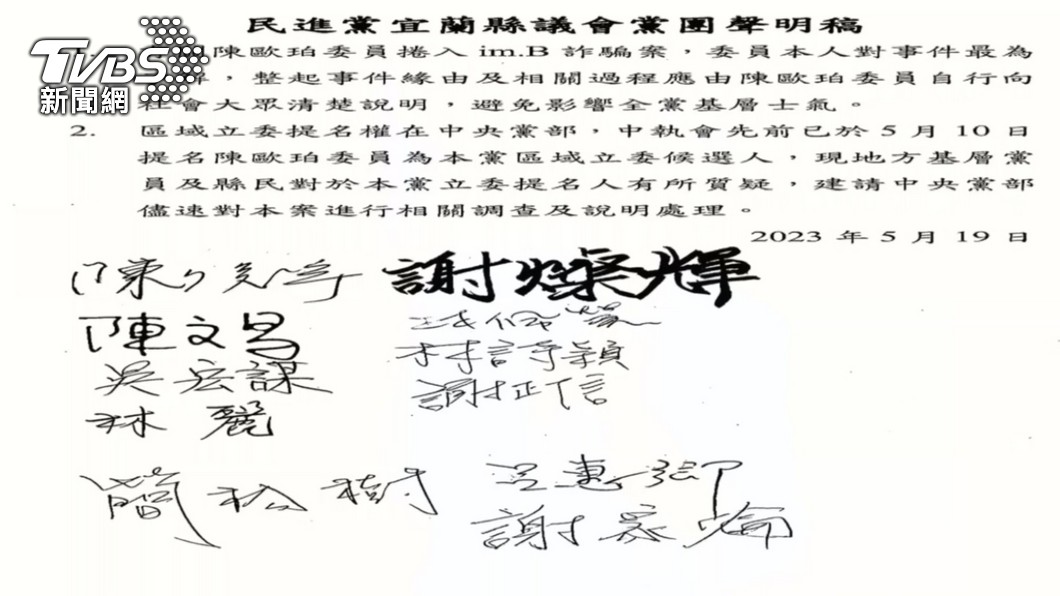 民進黨宜蘭縣議會黨團聲明稿
TVBS
新聞網
陳歐珀委員捲入 im.B 詐騙案，委員本人對事件最為
，整起事件緣由及相關過程應由陳歐珀委員自行向
社會大眾清楚說明，避免影響全黨基層士氣。
2. 區域立委提名權在中央黨部，中執會先前已於 5 月 10 日
提名陳歐珀委員為本黨區域立委候選人，現地方基層黨
員及縣民對於本黨立委提名人有所質疑，建請中央黨部
儘速對本案進行相關調查及說明處理。
2023 年 5 月 19 日
謝燦輝
陳文昌
吳宏謀
林詩穎
謝正信
林麗
簡松樹
謝家倫